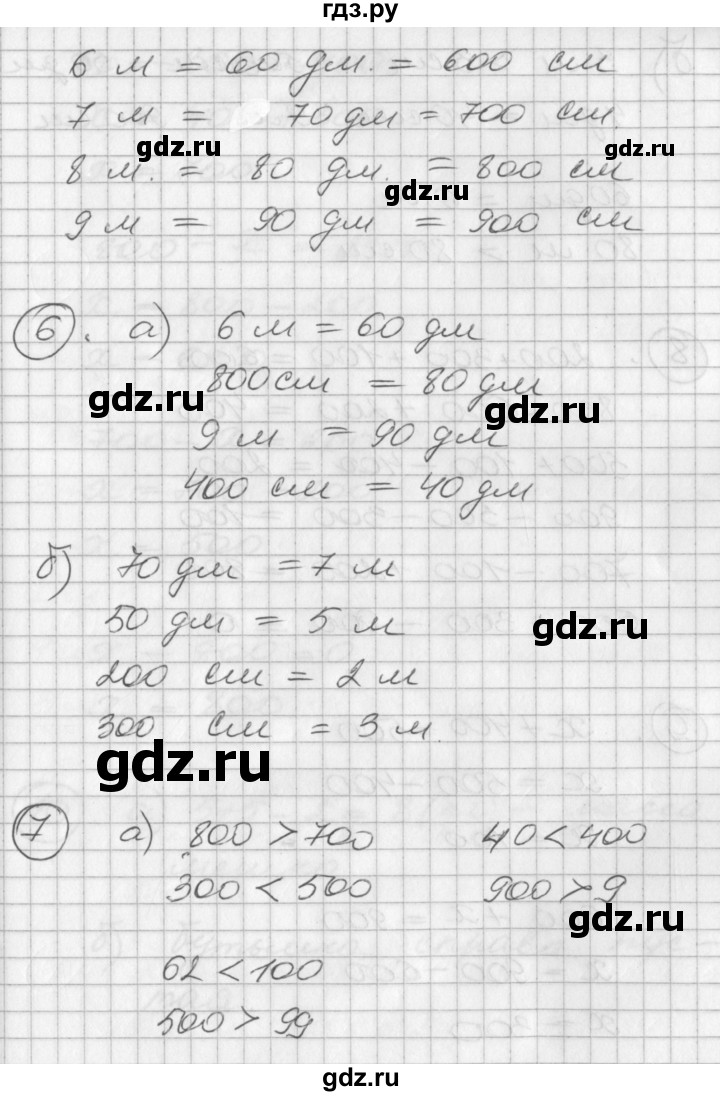 гдз.ру
6 м = 60 дм. = 600 см
7 м = 70 дм = 700 см
gdz.ru
gdz.ru
8 м. = 80 дм. = 800 см
gdz.ru
9 м = 90 дм = 900 см
6. а) 6 м = 60 дм
800 см = 80 дм
gdz.ru
gdz.ru
9 м. = 90 дм
400 см = 40 дм
б) 70 дм = 7 м
50 дм = 5 м
gdz.ru
200 см = 2 м
300 см = 3 м.
gdz.ru
7 а) 800 > 700 40 < 400
300 < 500 900 > 9
gdz.ru
62 < 100
500 > 99
gdz.ru